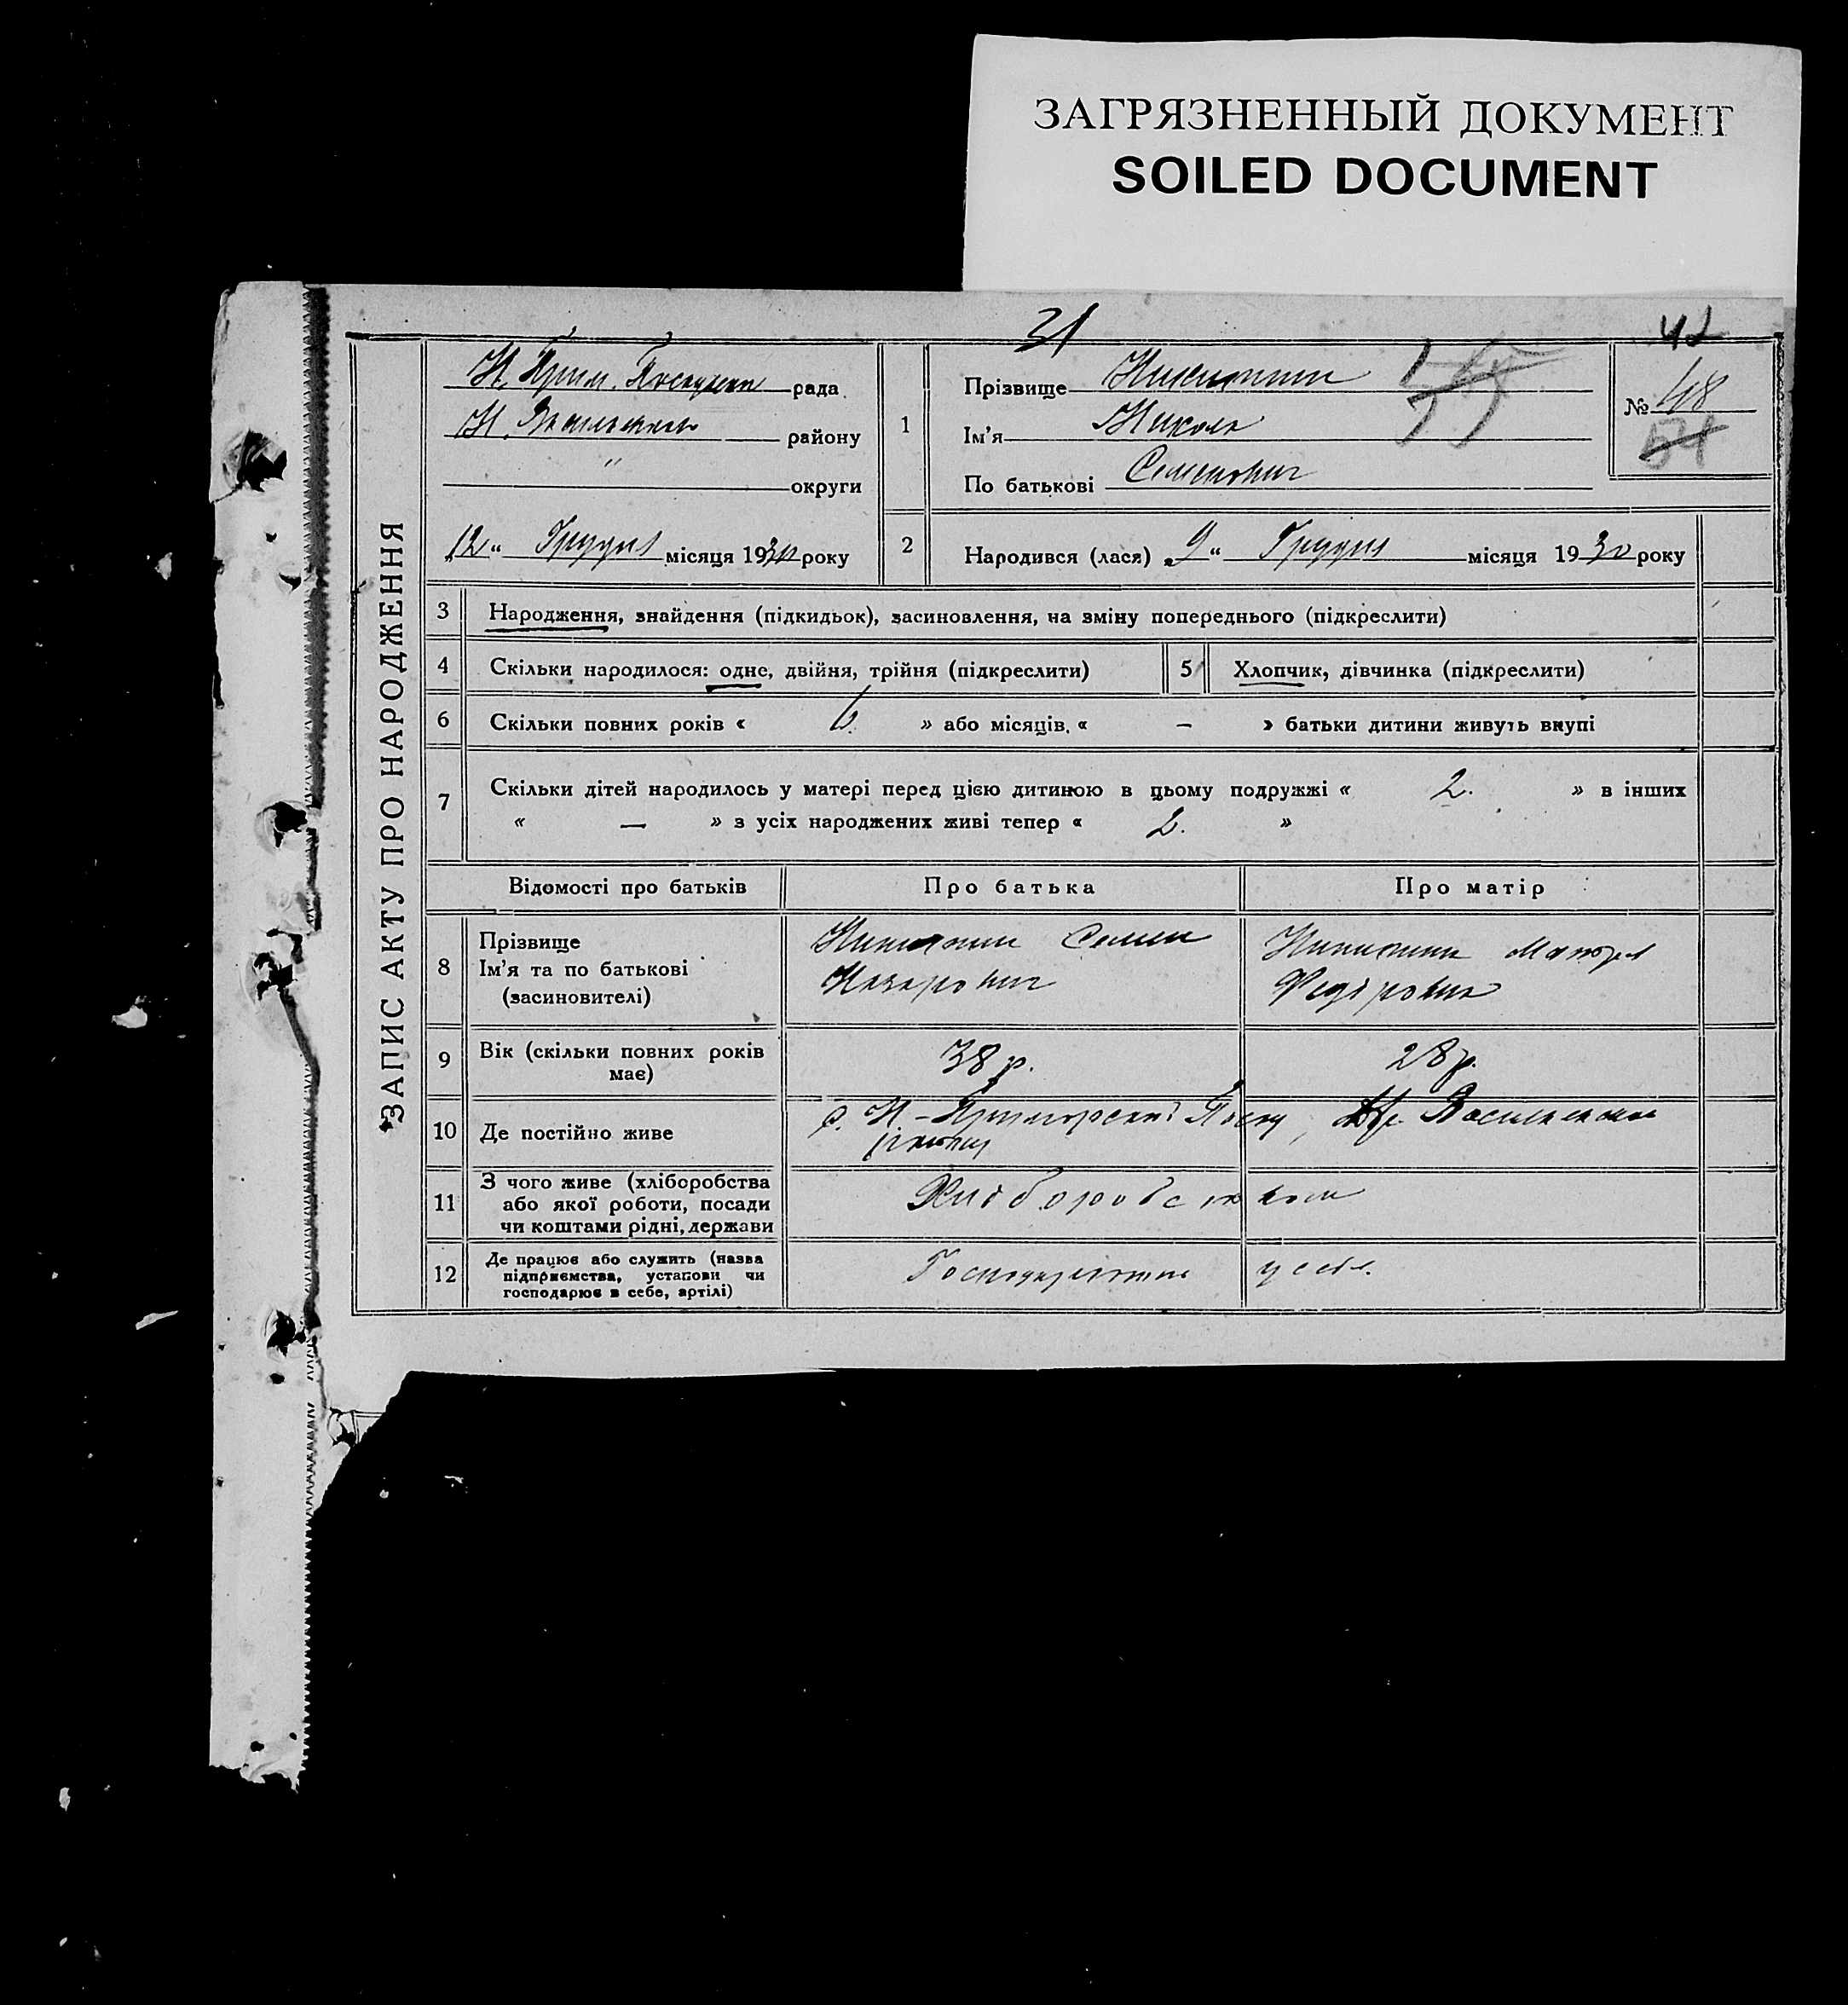 ЗАГРЯЗНЕННЫЙ ДОКУМЕНТ
SOILED DOCUMENT
31
42
ЗАПИС АКТУ ПРО НАРОДЖЕННЯ
Н. Прим. рада
Н. району
" округи
12 " Грудня місяця 1930 року
1
Прізвище
Ім'я Микола
По батькові Семенович
№ 48
54
2
Народився (лася) „ 9 " Грудня місяця 1930 року
3 Народження, знайдення (підкидьок), засиновлення, на зміну попереднього (підкреслити)
4 Скільки народилося: одне, двійня, трійня (підкреслити) 5 Хлопчик, дівчинка (підкреслити)
6 Скільки повних років « 6. » або місяців. « – » батьки дитини живуть вкупі
7 Скільки дітей народилось у матері перед цією дитиною в цьому подружжі « 2. » в інших
« — » з усіх народжених живі тепер « 2. »
Відомості про батьків Про батька Про матір
8 Прізвище
Ім'я та по батькові
(засиновителі)
Семен
Назарович
Мотря
Федіровна
9 Вік (скільки повних років
має)
38 р. 28 р.
10 Де постійно живе
с. Н.-Приморський Посад,
11 З чого живе (хліборобства
або якої роботи, посади
чи коштами рідні, держави
Хліборобством
12 Де працює або служить (назва
підприємства, установи чи
господарює в себе, артілі)
у себе.